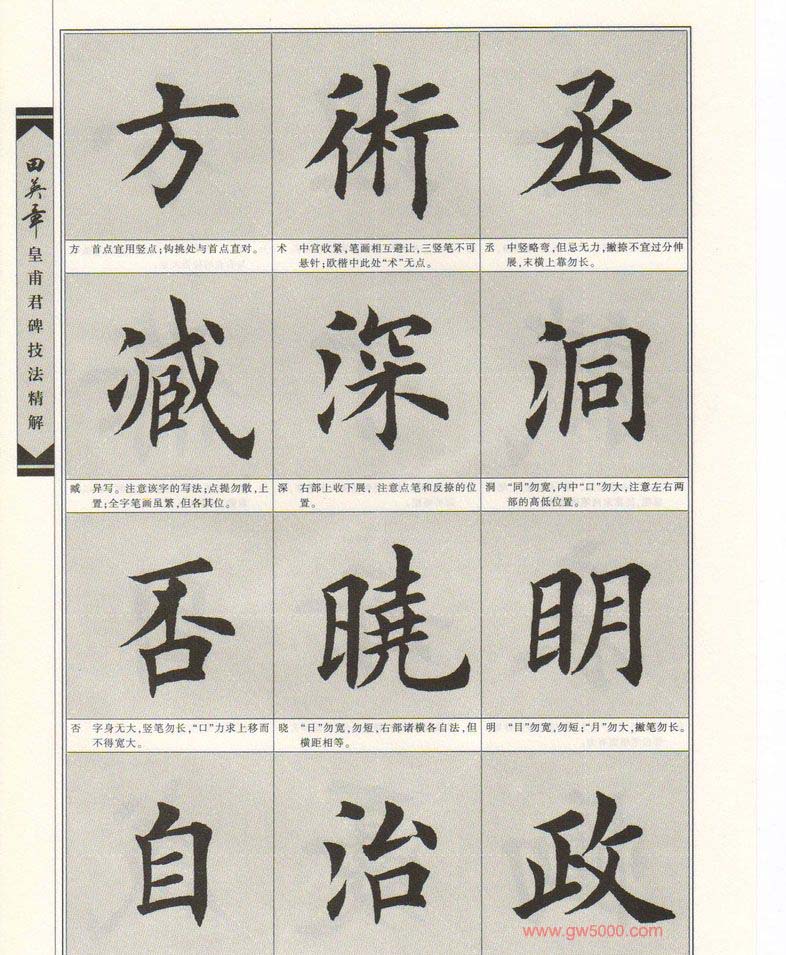 田英章
皇甫君碑技法精解
方
術
丞
方 首点宜用竖点;钩挑处与首点直对。
术 中宫收紧,笔画相互避让,三竖笔不可
悬针;欧楷中此处“术”无点。
丞 中竖略弯,但忌无力,撇捺不宜过分伸
展,末横上靠勿长。
深
洞
臧 异写。注意该字的写法;点提勿散,上
置;全字笔画虽繁,但各其位。
深 右部上收下展,注意点笔和反捺的位
置。
洞 “同”勿宽,内中“口”勿大,注意左右两
部的高低位置。
否
曉
明
否 字身无大,竖笔勿长,“口”力求上移而
不得宽大。
晓 “日”勿宽,勿短,右部诸横各自法,但
横距相等。
明 “目”勿宽,勿短;“月”勿大,撇笔勿长。
自
治
政
www.gw5000.com